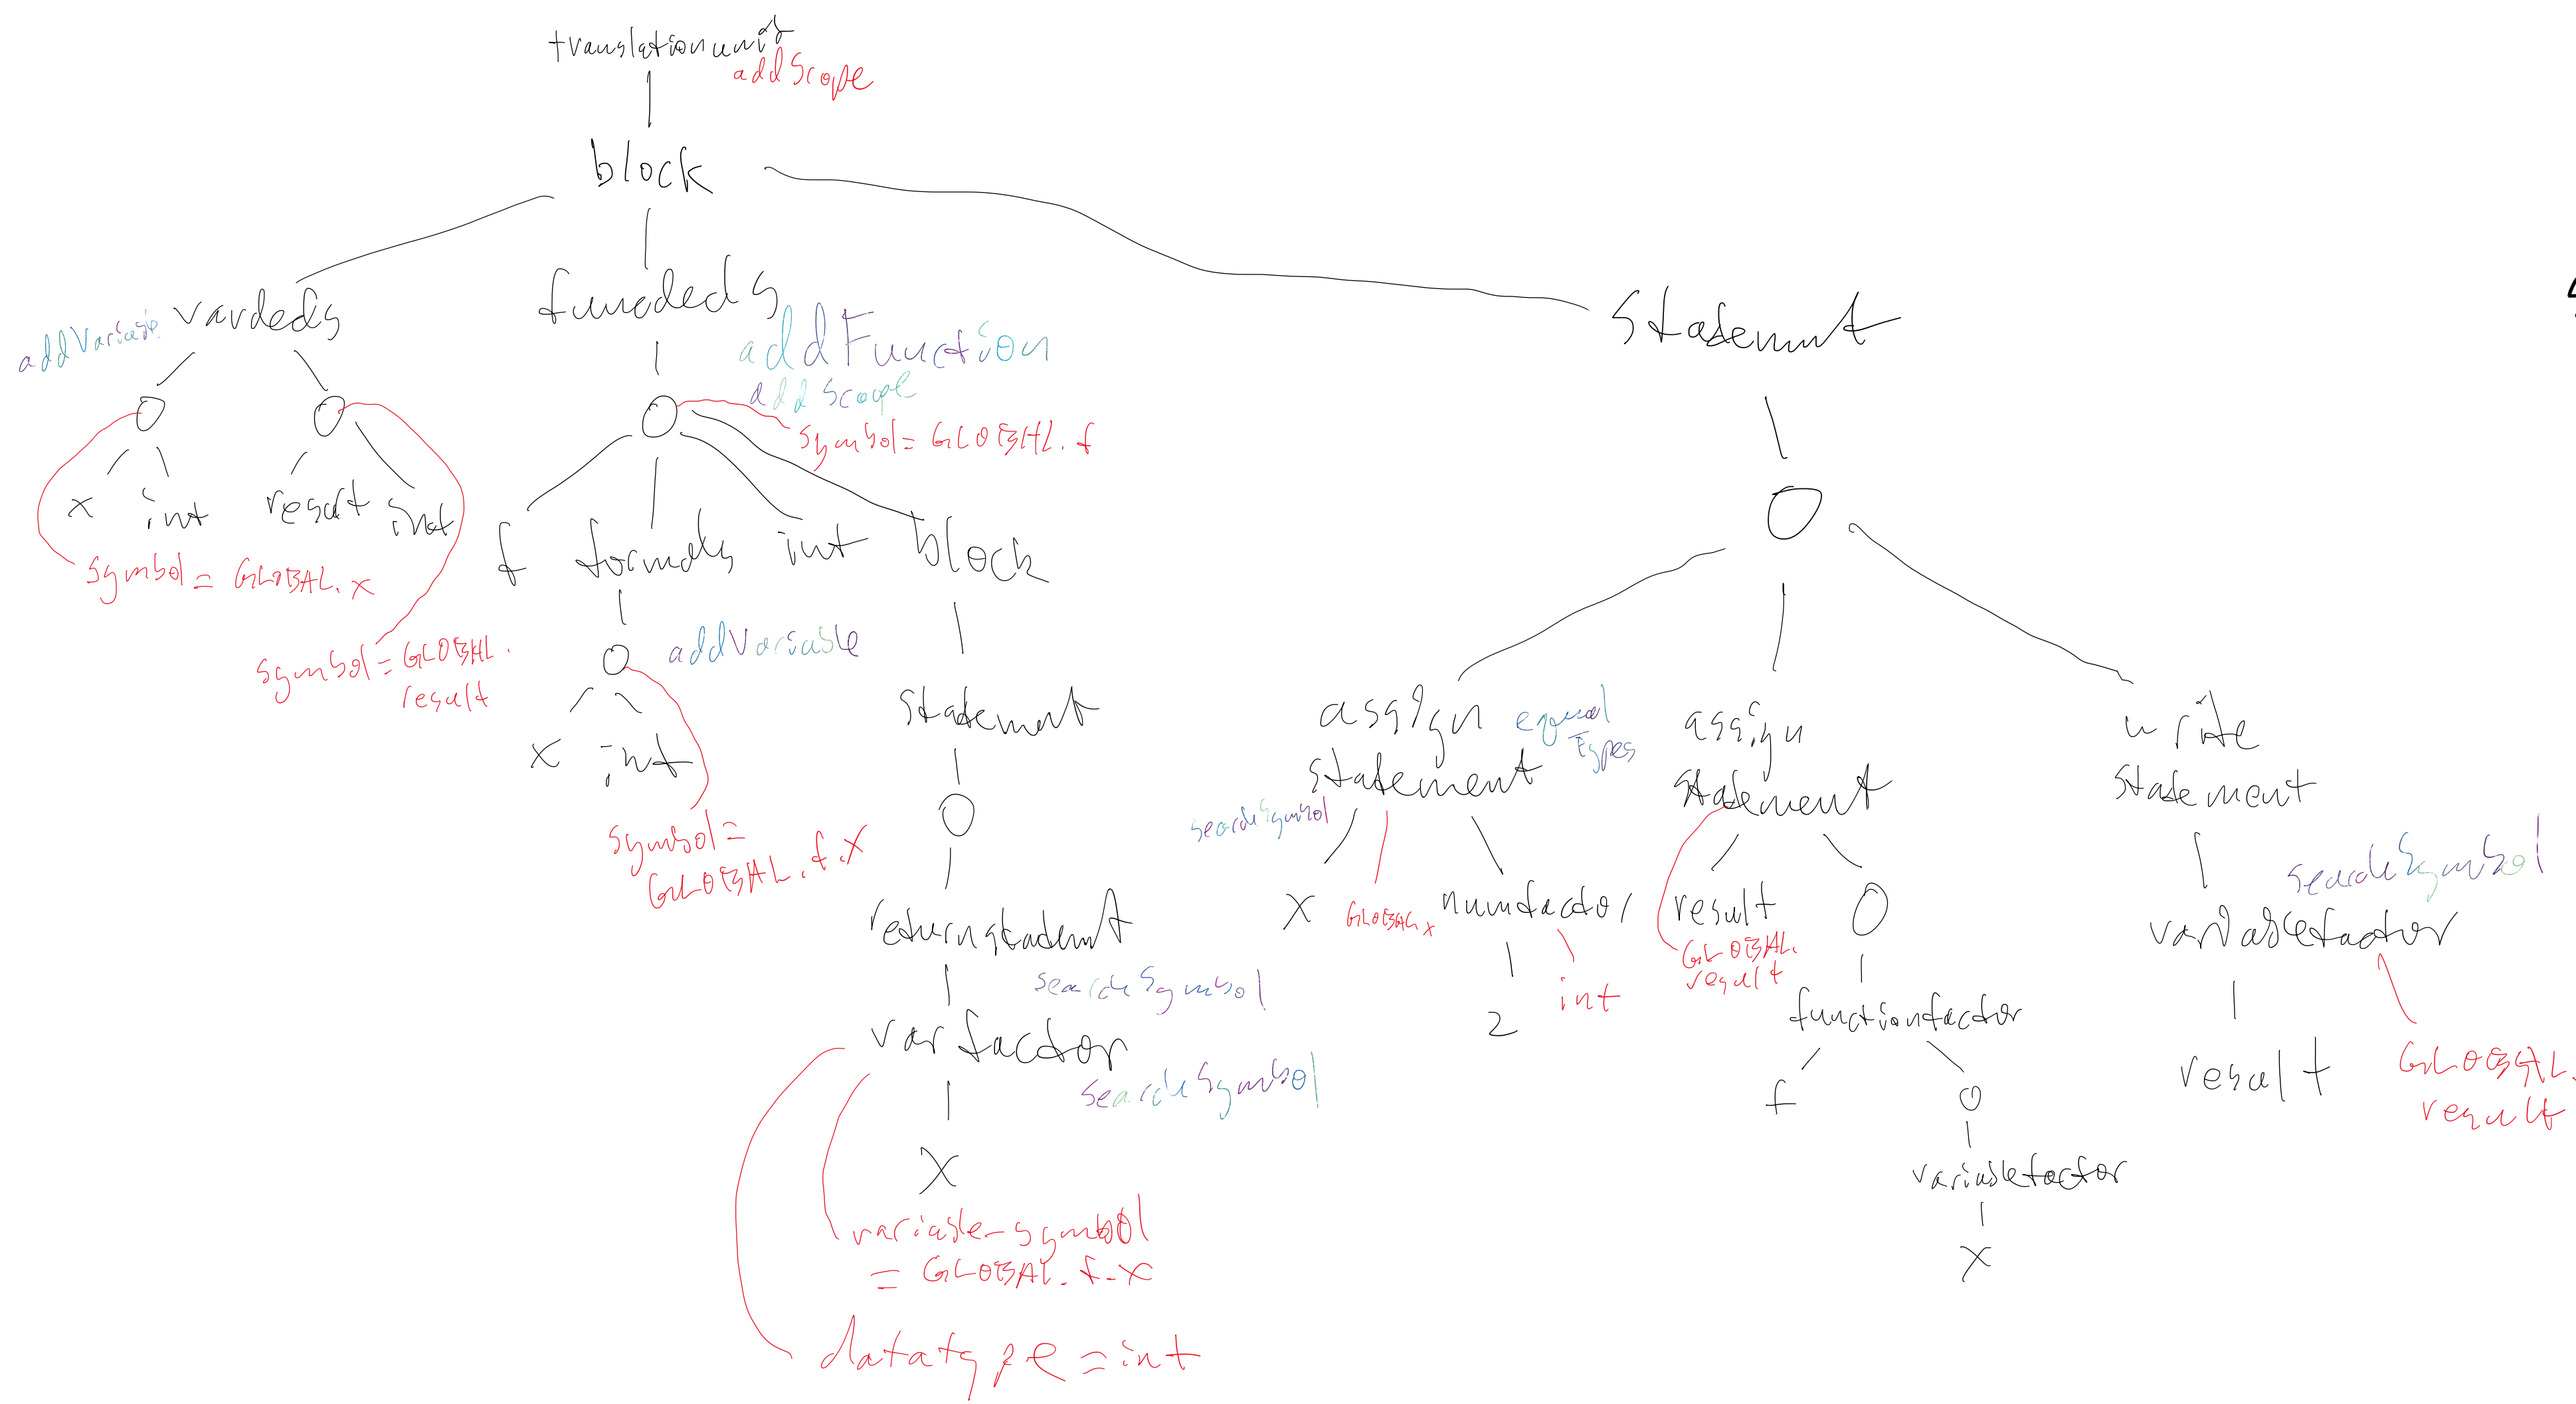 translationunit
addScope
block
vardecls
addVariable
funcdecls
addFunction
addScope
symbol = GLOBAL.f
statement
x int
result int
symbol = GLOBAL.x
symbol = GLOBAL.
result
f formals int block
addVariable
x int
symbol =
GLOBAL.f.x
statement
returnstatemt
searchSymbol
varfactor
searchSymbol
x
variable-symbol
= GLOBAL.f.x
datatype = int
assign
statement
equal
Types
searchSymbol
x
GLOBAL.x
numfactor
2
int
assign
statement
result
GLOBAL.
result
functionfactor
f
variablefactor
x
write
statement
searchSymbol
variablefactor
result
GLOBAL.
result